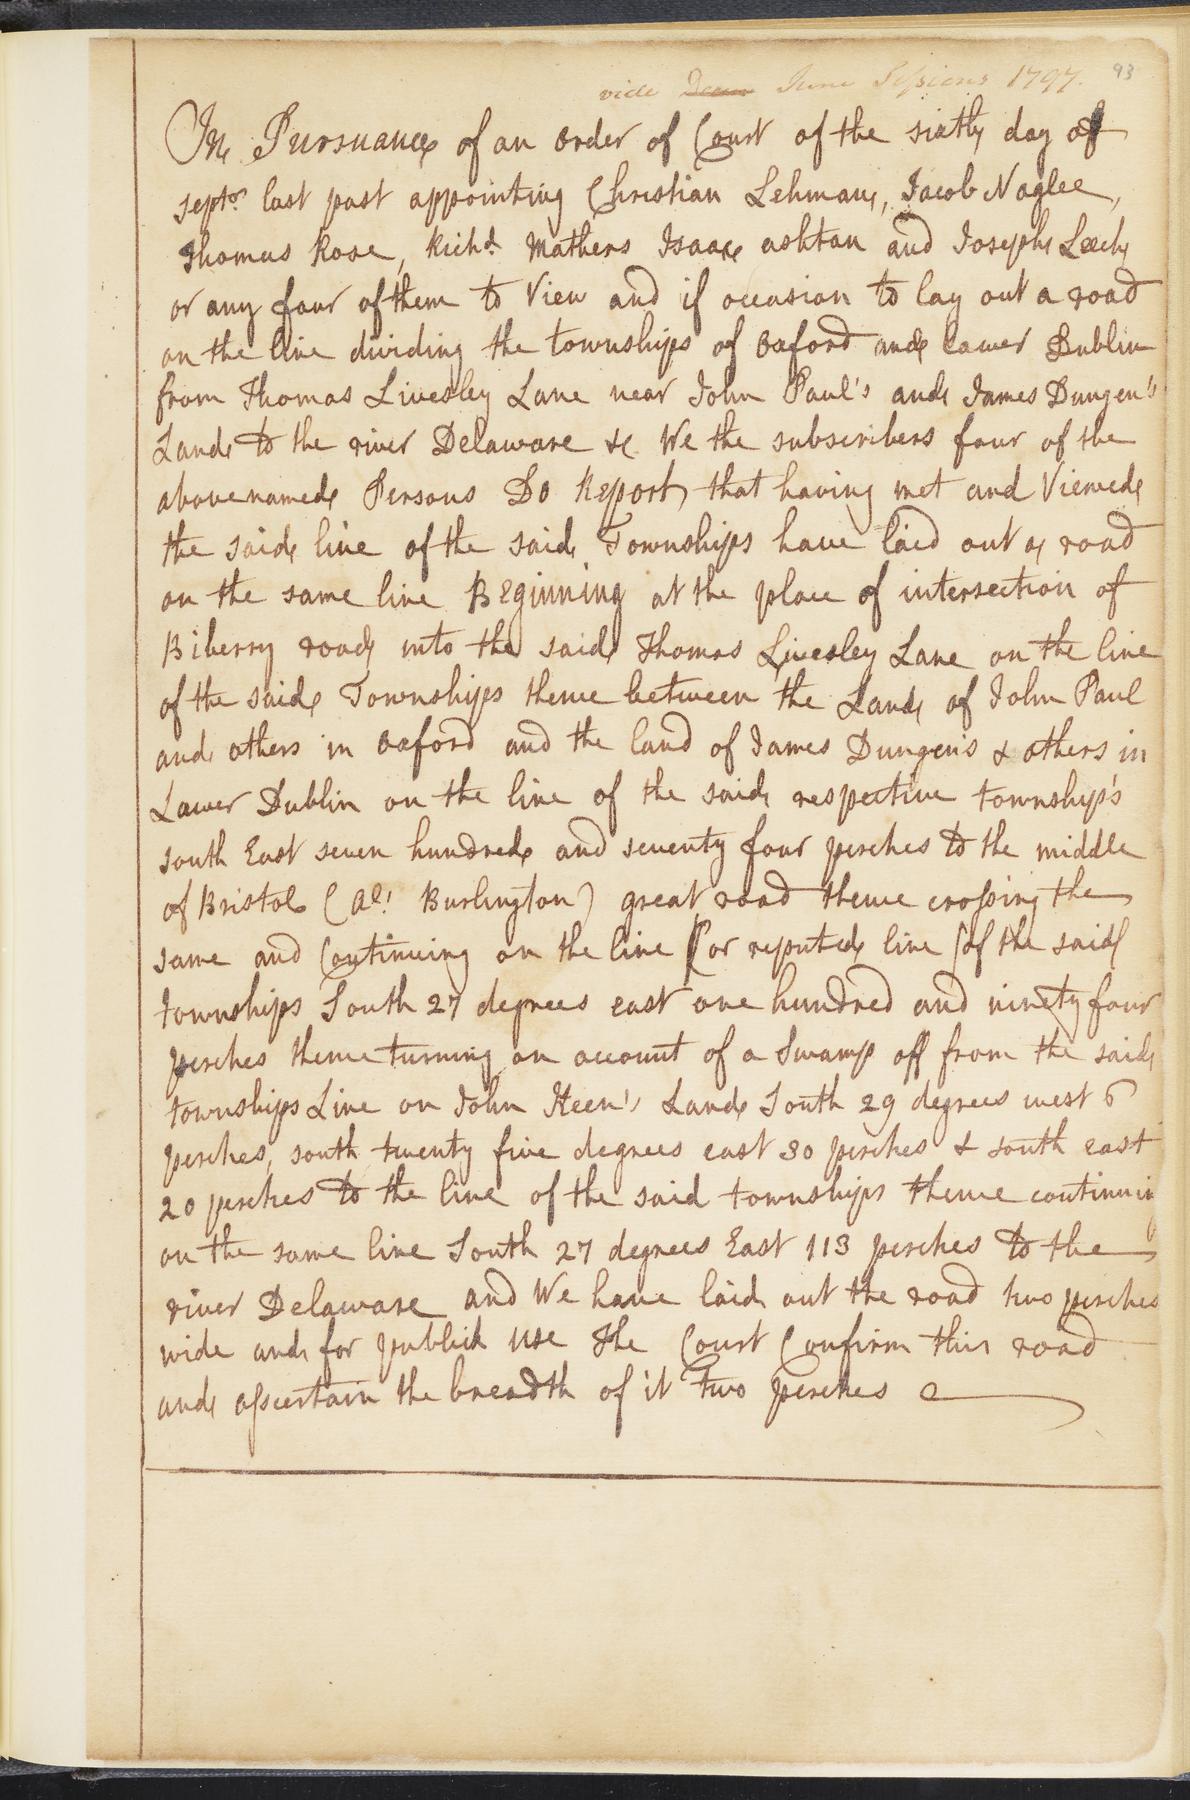 vide Decem June Sessions 1797. 93
In Pursuance of an order of Court of the sixth day of
septr last past appointing Christian Lehman, Jacob Naglee,
Thomas Rose, Richd Mathers Isaac ashton and Joseph Leech
or any four of them to View and if occasion to lay out a road
on the line dividing the townships of Oxford and Lower Dublin
from Thomas Livesley Lane near John Paul's and James Dungen's
Land to the river Delaware &c We the subscribers four of the
abovenamed Persons Do Report that having met and Viewed
the said line of the said Townships have laid out a road
on the same line Beginning at the place of intersection of
Biberry road into the said Thomas Livesley Lane on the line
of the said Townships thence between the Land of John Paul
and others in Oxford and the land of James Dungen's & others in
Lower Dublin on the line of the said respective township's
south East seven hundred and seventy four perches to the middle
of Bristol (als Burlington) great road thence crossing the
same and Continuing on the line (or reputed line) of the said
townships South 27 degrees east one hundred and ninety four
perches thence turning on account of a Swamp off from the said
townships Line on John Keen's Land South 29 degrees west 6
perches, south twenty five degrees east 30 perches & south east
20 perches to the line of the said townships thence continuing
on the same line South 27 degrees East 113 perches to the
river Delaware and We have laid out the road two perches
wide and for publick use The Court Confirm this road
and assertain the breadth of it two perches